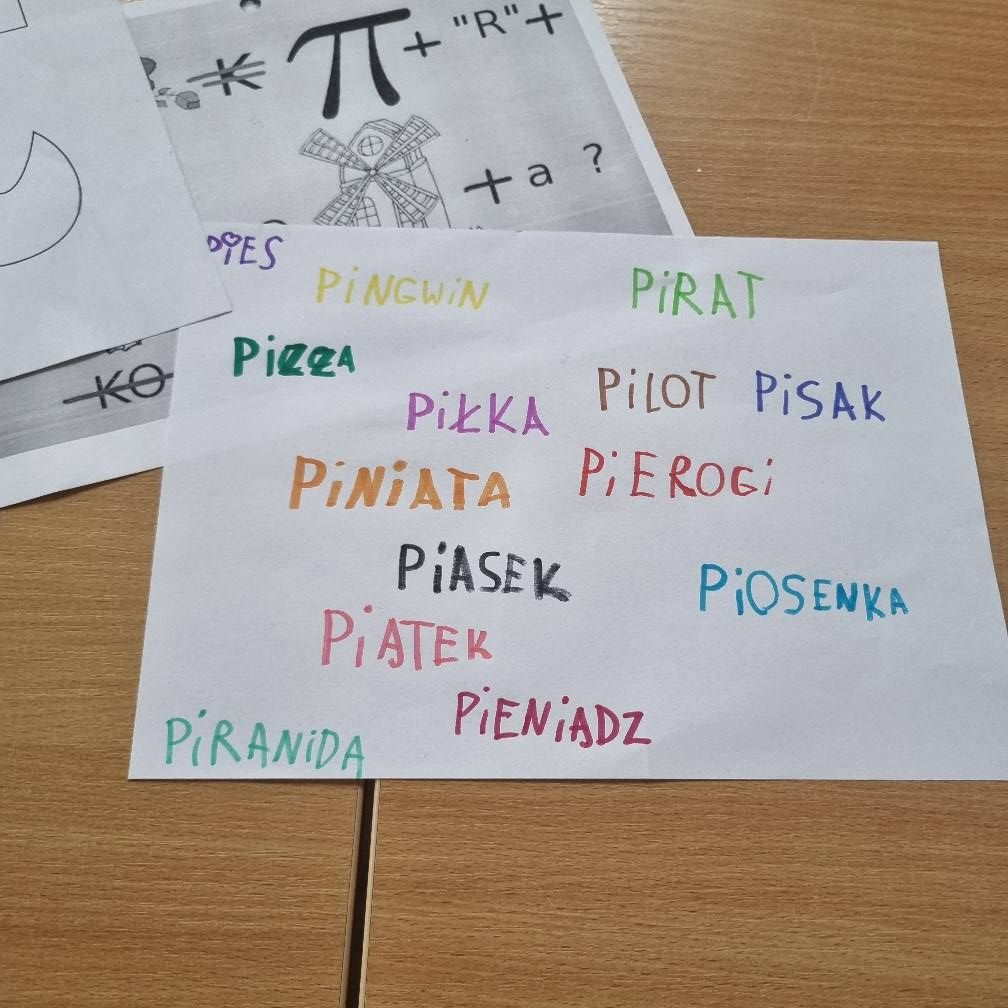 K π + "R" +
+ a ?
KO
PiES
PiNGWiN PiRAT
PiZZA
PiŁKA PiLOT PiSAK
PiNiATA PiEROGi
PiASEK PiOSENKA
PiĄTEK
PiENiĄDZ
PiRANiDA